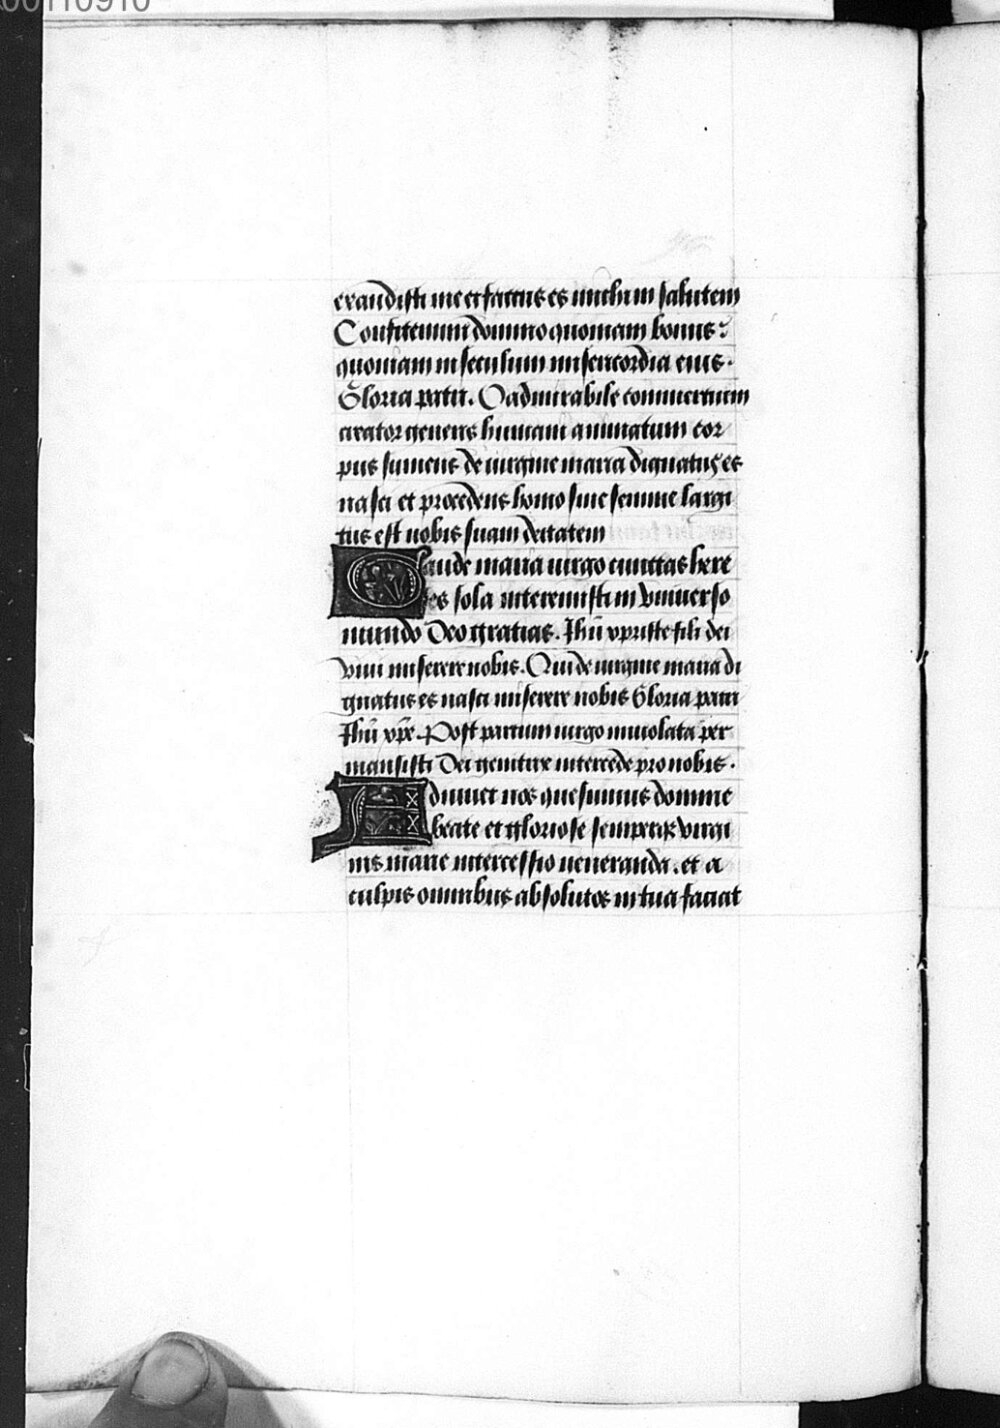 00110910
exaudisti me et factus es michi in salutem
Confitemini domino quoniam bonus :
quoniam in seculum misericordia eius .
Gloria patri . O admirabile commercium
creator generis humani animatum cor
pus sumens de uirgine maria dignatus es
nasci et procedens homo sine semine largi
tus est nobis suam deitatem
Gaude maria uirgo cunctas here
ses sola interemisti in vniuerso
mundo Deo gratias . Ihū xpriste fili dei
viui miserere nobis . Qui de uirgine maria di
gnatus es nasci miserere nobis Gloria patri
Ihū xpē . Post partum uirgo inuiolata per
mansisti Dei genitrix intercede pro nobis .
Adiuuet nos quesumus domine
beate et gloriose semperqȝ virgi
nis marie intercessio ueneranda . et a
culpis omnibus absolutos in tua faciat